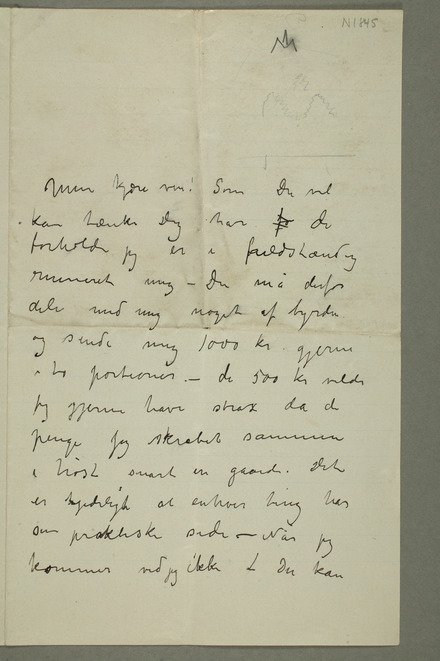 N1845
Min kjære ven! Som Du vel
kan tænke Dig har de
forholde jeg er i fuldstændig
rumineret mig – Du må derfor
dele med mig noget af byrden
og sende mig 1000 kr. gjerne
i to portioner. – de 500 kr vilde
jeg gjerne have strax da de
penge jeg skrabet sammen
i høst snart er gaaede. Det
er kjedeligt at enhver ting har
sin praktiske side – Når jeg
kommer ved jeg ikke Du kan